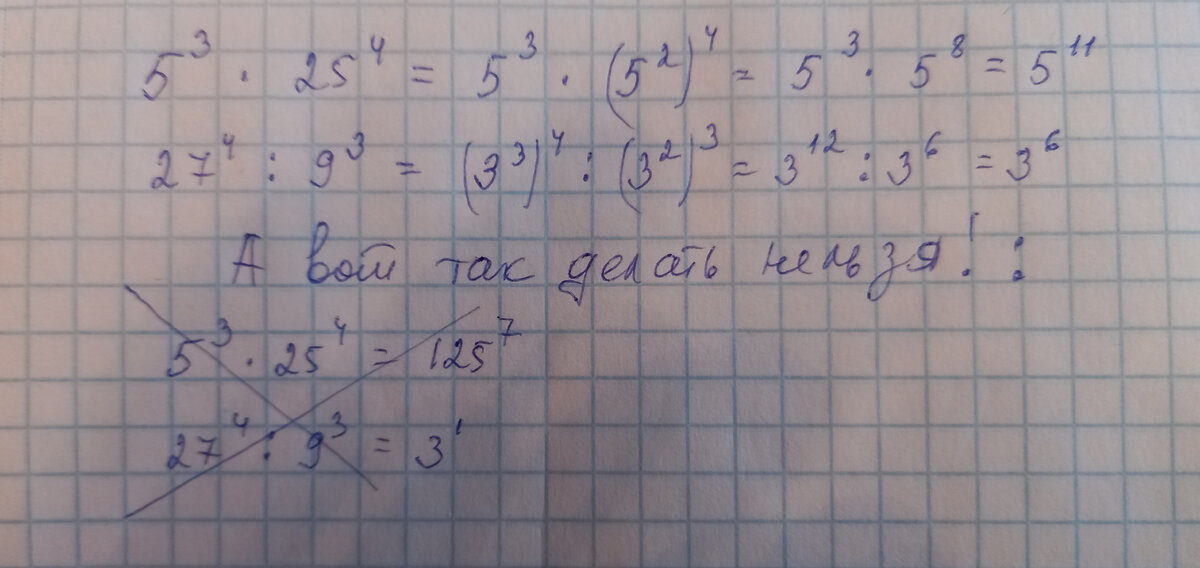 5³ · 25⁴ = 5³ · (5²)⁴ = 5³ · 5⁸ = 5¹¹
27⁴ : 9³ = (3³)⁴ : (3²)³ = 3¹² : 3⁶ = 3⁶
А вот так делать нельзя! :
5³ · 25⁴ = 125⁷
27⁴ : 9³ = 3¹